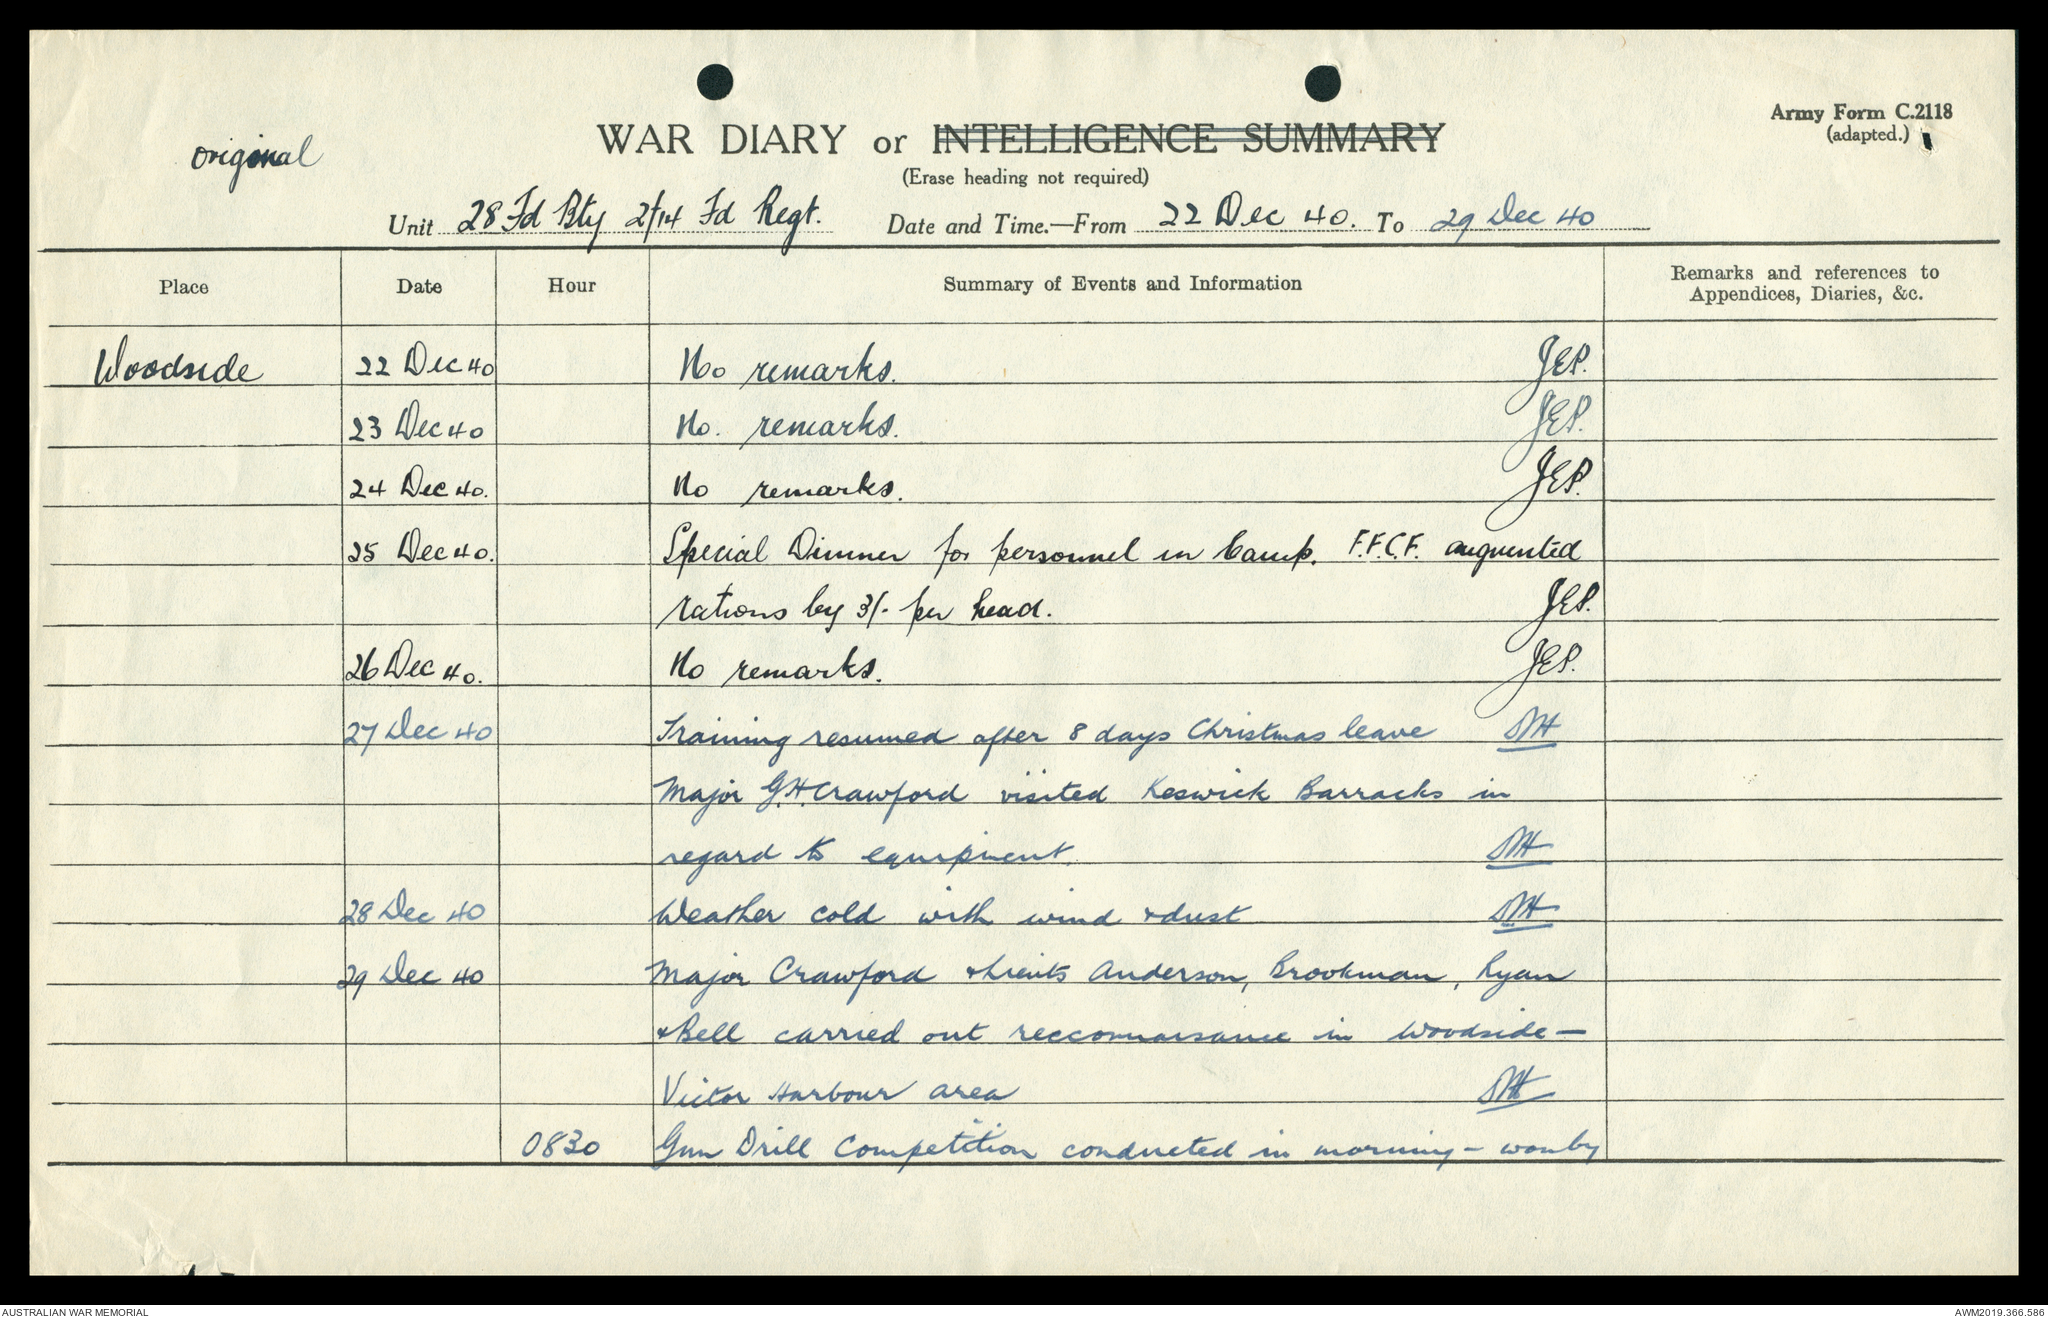 original
WAR DIARY or INTELLIGENCE SUMMARY
(Erase heading not required)
Army Form C.2118
(adapted.)
Unit 28 Fd Bty 2/14 Fd Regt. Date and Time.—From 22 Dec 40. To 29 Dec 40
Place Date Hour Summary of Events and Information Remarks and references to
Appendices, Diaries, &c.
Woodside 22 Dec 40 No remarks. JEP.
23 Dec 40 No. remarks. JEP.
24 Dec 40. No remarks. JEP.
25 Dec 40. Special Dinner for personnel in Camp. F.F.C.F. augmented
rations by 3/- per head. JEP.
26 Dec 40. No remarks. JEP.
27 Dec 40 Training resumed after 8 days Christmas leave
Major G.H. Crawford visited Keswick Barracks in
regard to equipment.
28 Dec 40 Weather cold with wind & dust
29 Dec 40 Major Crawford & Lieuts Anderson, Brookman, Ryan
& Bell carried out recconnaisance in Woodside —
Victor Harbour area
0830 Gun Drill Competition conducted in morning – won by
AUSTRALIAN WAR MEMORIAL AWM2019.366.586